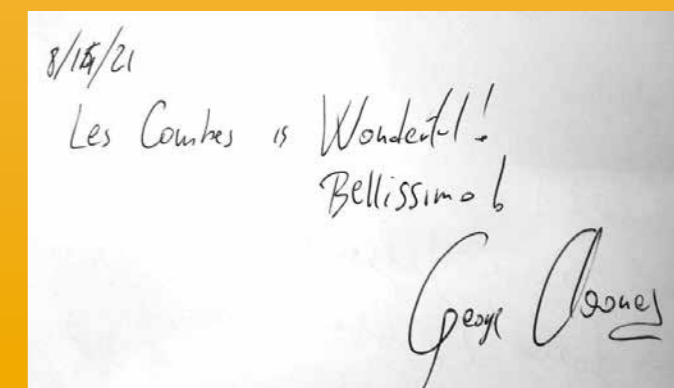 8/15/21
Les Combes is Wonderful!
Bellissimo!
George Clooney